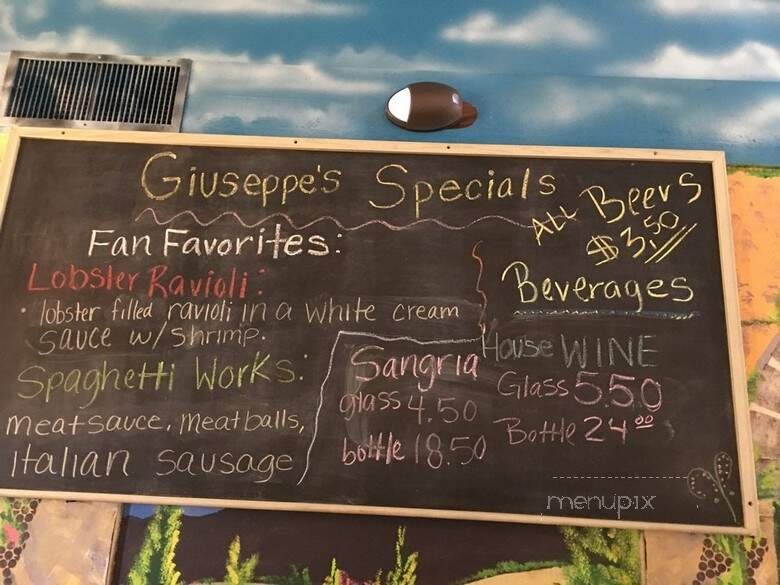 Giuseppe's Specials
Fan Favorites:
Lobster Ravioli:
• lobster filled ravioli in a white cream
sauce w/shrimp.
Spaghetti Works:
meatsauce, meatballs,
Italian sausage
Sangria
glass 4.50
bottle 18.50
ALL Beers
$3.50
Beverages
House WINE
Glass 5.50
Bottle 24.00
menupix